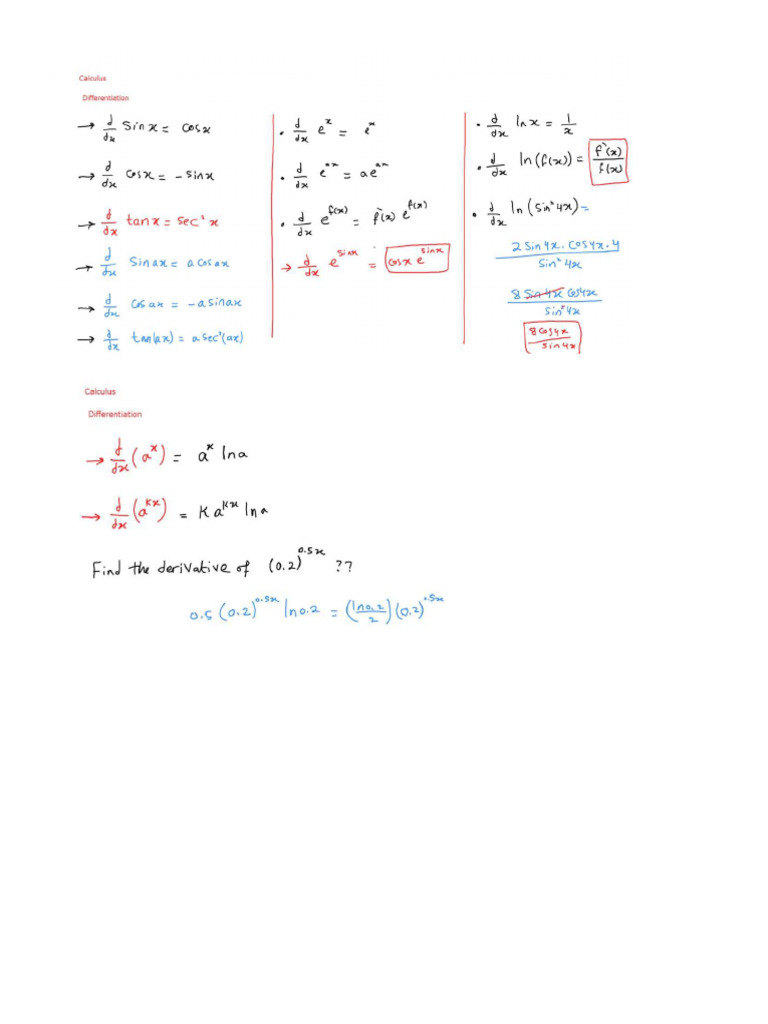 Calculus
Differentiation
→ d/dx Sinx = cosx
→ d/dx cosx = -sinx
→ d/dx tanx = sec²x
→ d/dx Sinax = a cosax
→ d/dx cosax = -a sinax
→ d/dx tan(ax) = a sec²(ax)
• d/dx e^x = e^x
• d/dx e^ax = a e^ax
• d/dx e^f(x) = f`(x) e^f(x)
→ d/dx e^sinx = cosx e^sinx
• d/dx lnx = 1/x
• d/dx ln(f(x)) = f`(x)/f(x)
• d/dx ln(sin²4x) =
2 Sin4x . Cos4x . 4
Sin²4x
8 Sin4x Cos4x
Sin²4x
8 Cos4x
sin4x
Calculus
Differentiation
→ d/dx (a^x) = a^x lna
→ d/dx (a^Kx) = K a^Kx lna
Find the derivative of (0.2)^0.5x ??
0.5 (0.2)^0.5x ln0.2 = (ln0.2/2) (0.2)^.5x